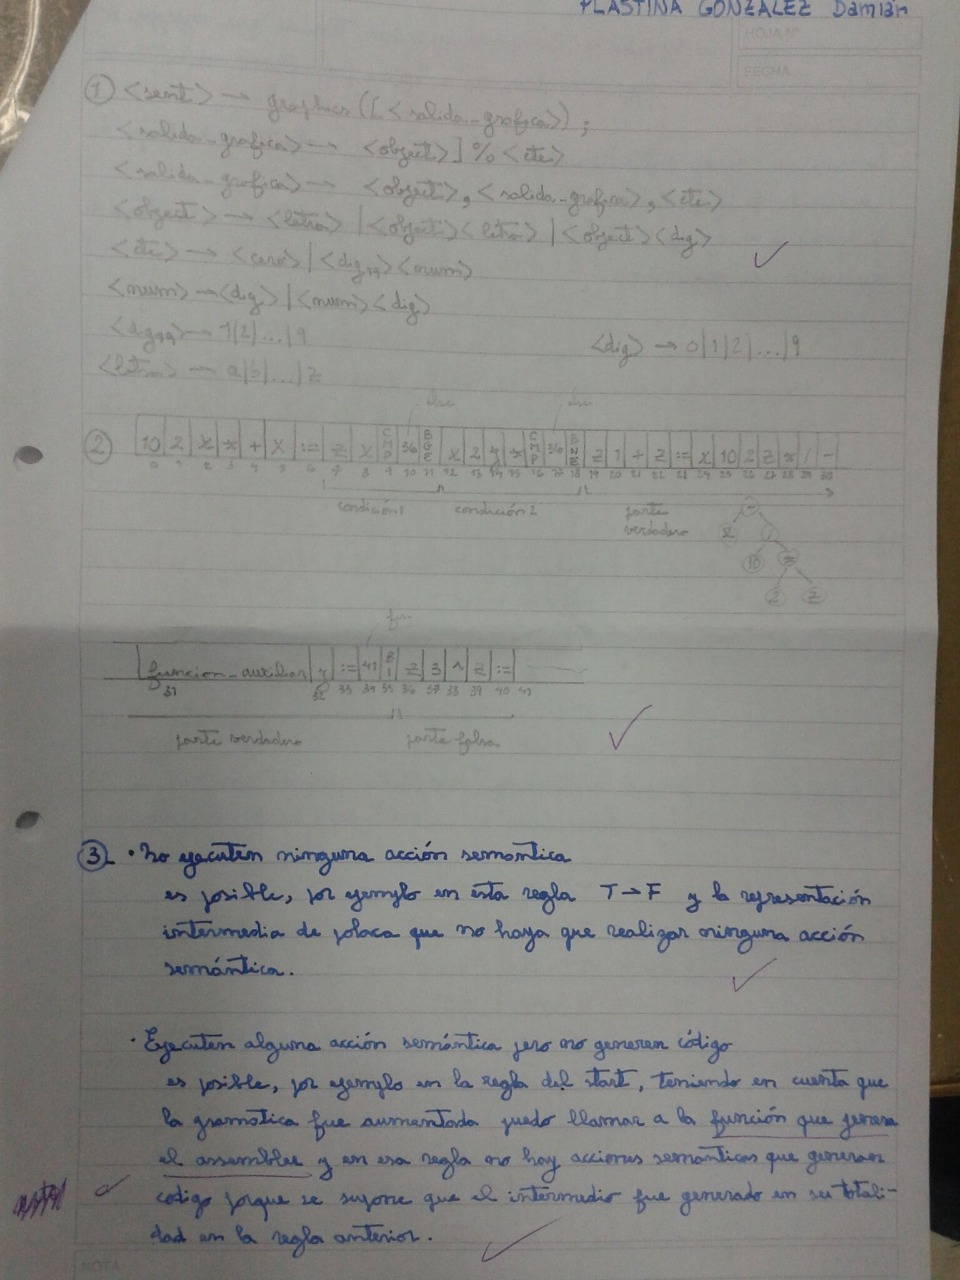 PLASTINA GONZALEZ Damián
HOJA Nº
FECHA
1 <sent> → graphics([<salida_grafica>);
<salida_grafica> → <object>]%<ite>
<salida_grafica> → <object>,<salida_grafica>,<ite>
<object> → <letra>|<object><letra>|<object><dig>
<ite> → <cero>|<dig19><num>
<num> → <dig>|<num><dig>
<dig19> → 1|2|...|9 <dig> → 0|1|2|...|9
<letra> → a|b|...|z
else else
2 10 2 x * + x := z x CMP 36 BGE x 2 CMP 36 BNE z 1 + z := x 10 2 z * / -
0 1 2 3 4 5 6 7 8 9 10 11 12 13 14 15 16 17 18 19 20 21 22 23 24 25 26 27 28 29 30
condición 1 condición 2 parte
verdadero
-
x /
10 *
2 z
fin
funcion_auxiliar := 41 BI z 3 ^ z :=
31 32 33 34 35 36 37 38 39 40 41
parte verdadero parte falsa
3 • No ejecuten ninguna acción semántica
es posible, por ejemplo en esta regla T→F y la representación
intermedia de polaca que no haya que realizar ninguna acción
semántica.
• Ejecuten alguna acción semántica pero no generen código
es posible, por ejemplo en la regla del start, teniendo en cuenta que
la gramática fue aumentada puedo llamar a la función que genera
el assembler y en esa regla no hay acciones semánticas que generan
código porque se supone que el intermedio fue generado en su totali-
dad en la regla anterior.
NOTA